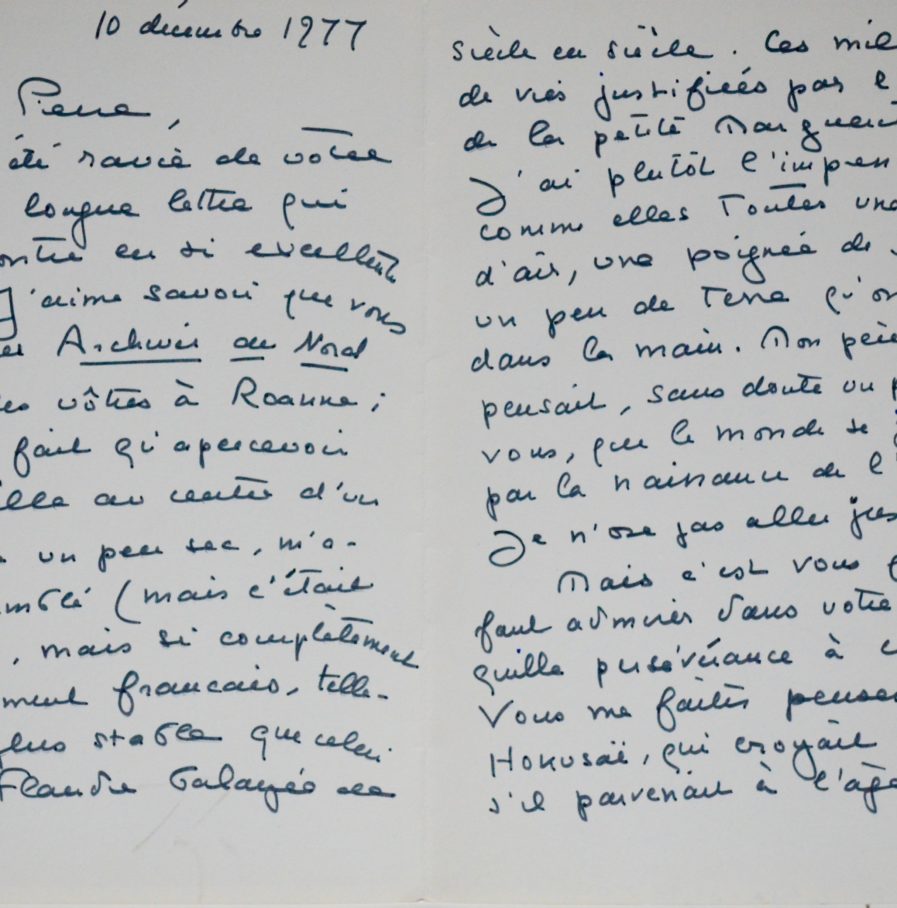 10 décembre 1977
Pierre,
été ravie de votre
longue lettre qui
ontre en si excellente
J'aime savoir que vous
Archives du Nord
les vôtres à Roanne;
fait qu'apercevoir
ille au centre d'un
un peu sec, m'a-
emblé (mais c'était
, mais si complètement
ment français, telle-
plus stable que celui
Flandre balayée de
siècle en siècle. Ces mil
de vies justifiées par l
de la petite Marguerit
J'ai plutôt l'impres
comme elles toutes une
d'air, une poignée de
un peu de terre qu'on
dans la main. Mon père
pensait, sans doute un p
vous, que le monde se j
par la naissance de l'
Je n'ose pas aller jus
Mais c'est vous q
faut admirer dans votre
quille persévérance à
Vous me faites penser
Hokusaï, qui croyait
s'il parvenait à l'âge